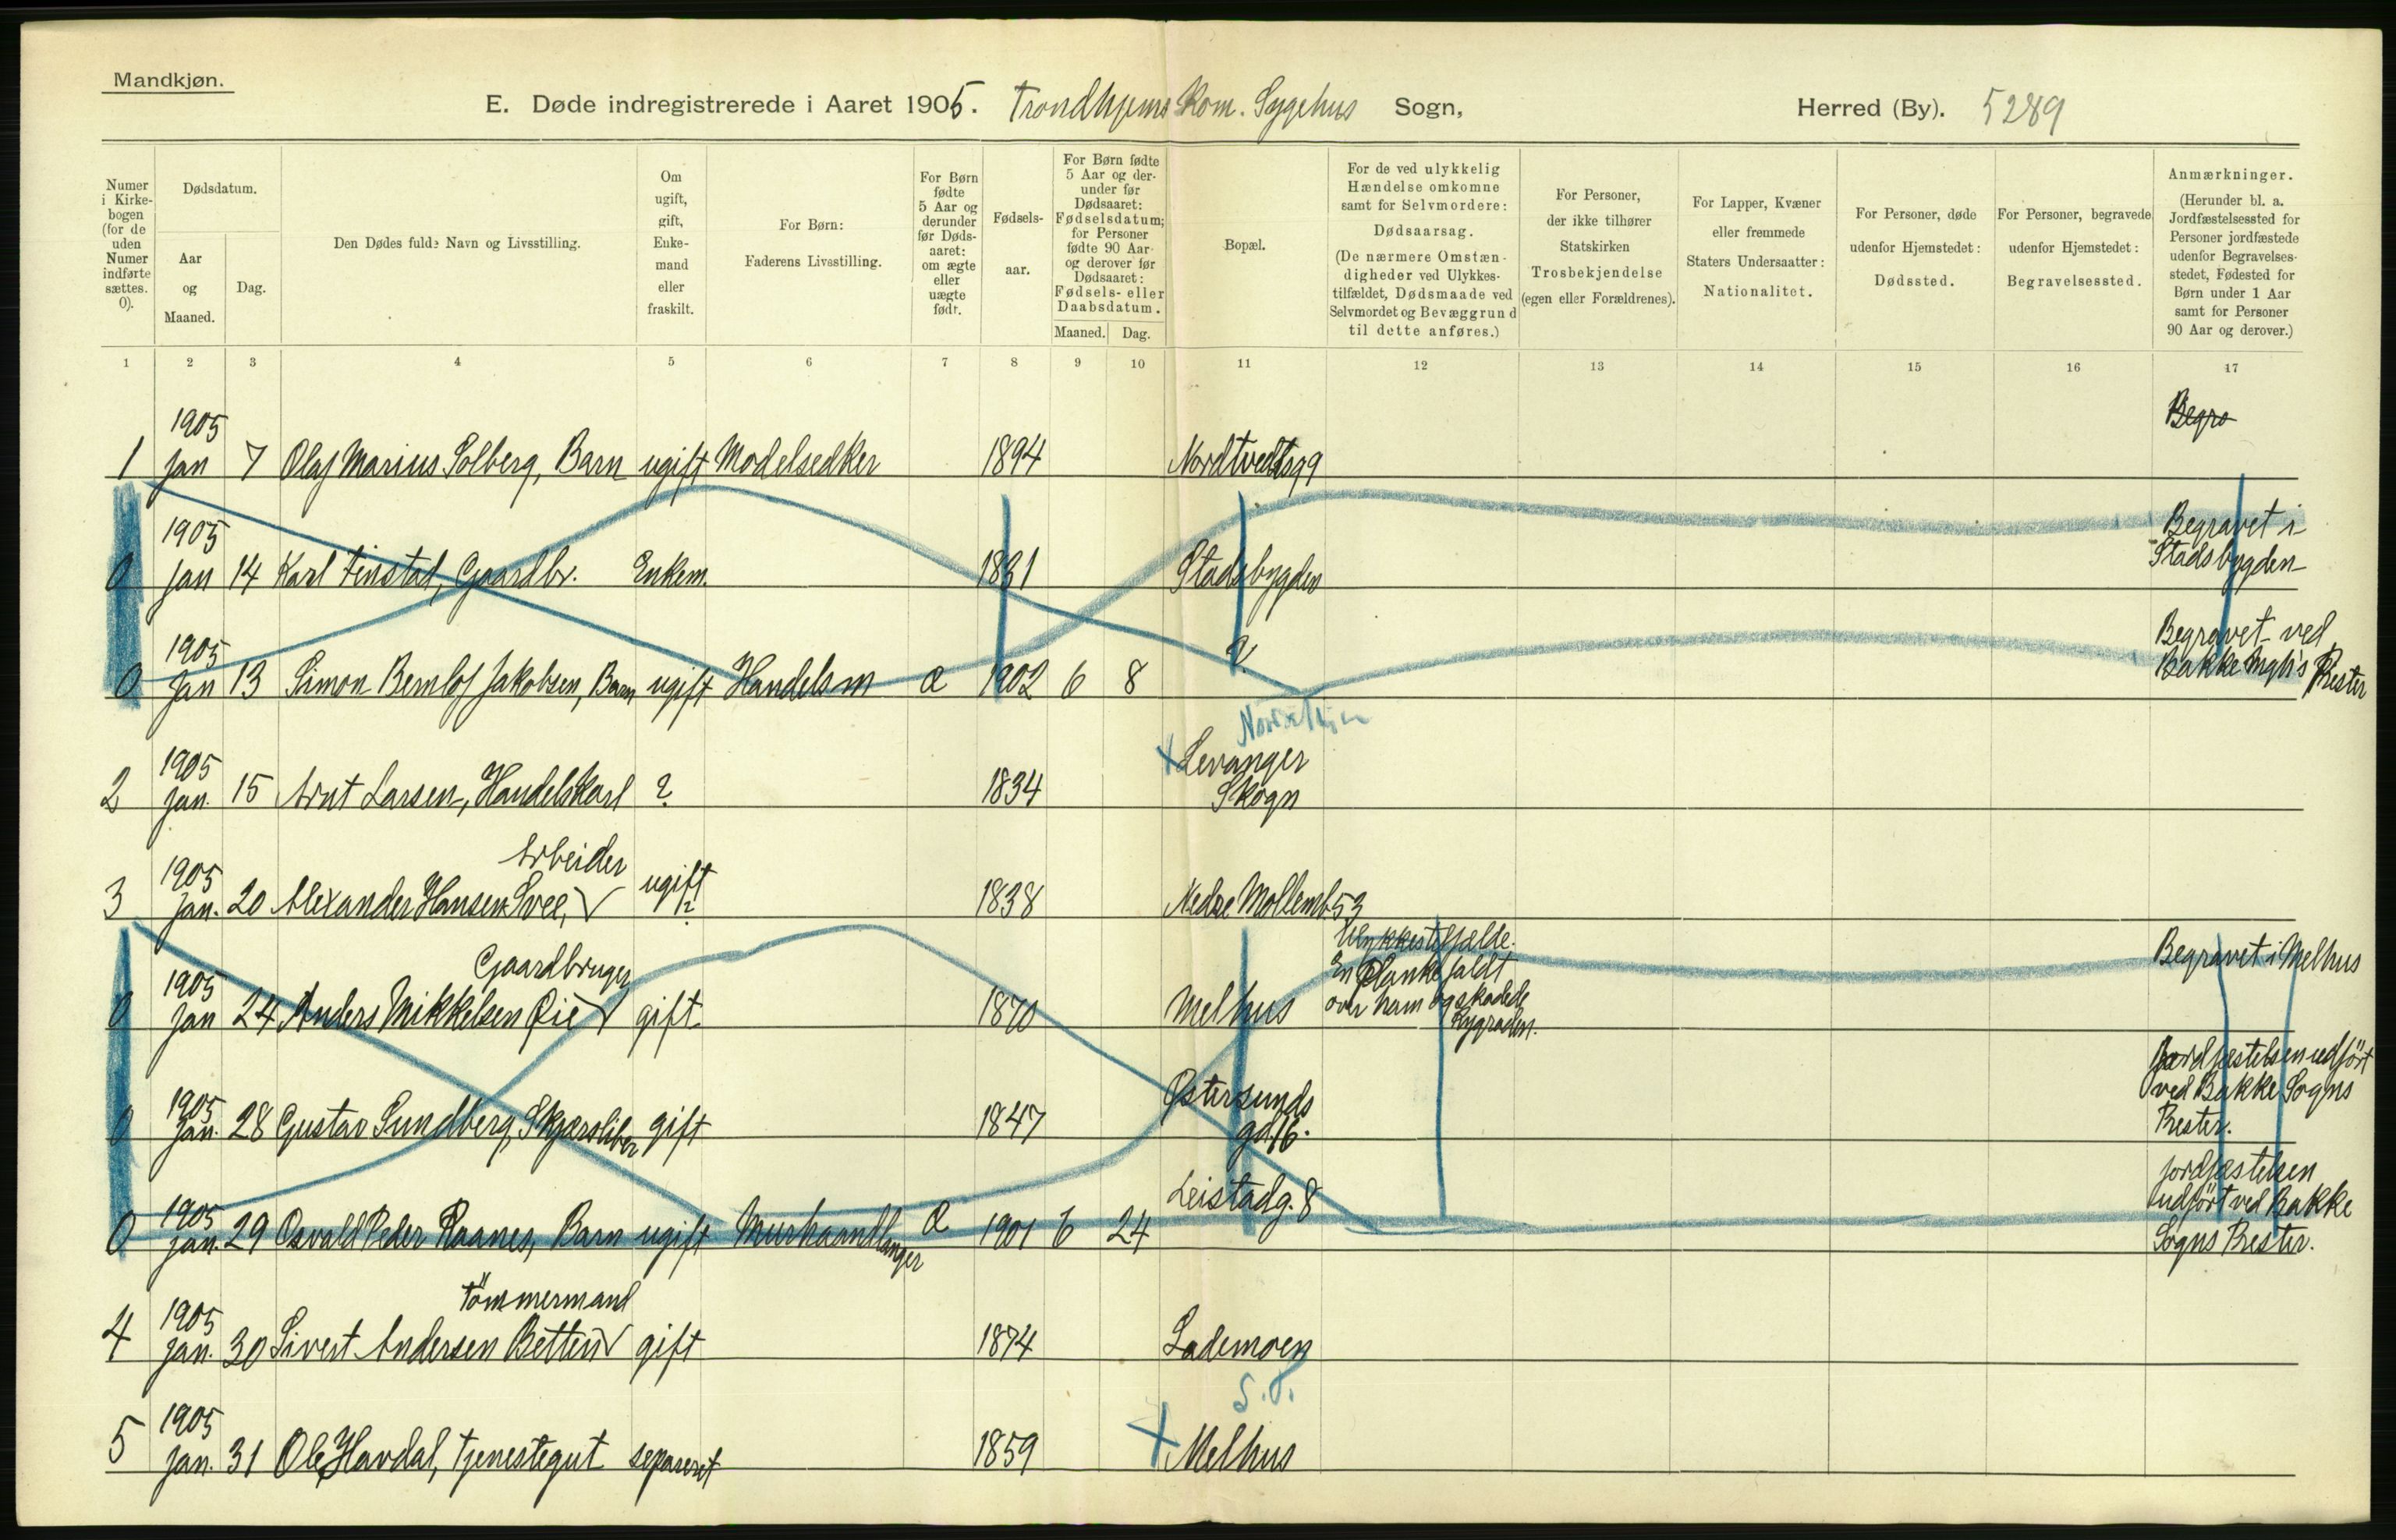 Mandkjøn.
E. Døde indregistrerede i Aaret 1905. Trondhjems Kom. Sygehus Sogn, Herred (By). 5289
Numer i Kirkebogen (for de uden Numer indførte sættes. 0).
Dødsdatum.
Aar og Maaned.
Dag.
Den Dødes fulde Navn og Livsstilling.
Om ugift, gift, Enkemand eller fraskilt.
For Børn: Faderens Livsstilling.
For Børn fødte 5 Aar og derunder før Dødsaaret: om ægte eller uægte født.
Fødselsaar.
For Børn fødte 5 Aar og derunder før Dødsaaret: Fødselsdatum; for Personer fødte 90 Aar og derover før Dødsaaret: Fødsels- eller Daabsdatum.
Maaned. Dag.
Bopæl.
For de ved ulykkelig Hændelse omkomne samt for Selvmordere: Dødsaarsag. (De nærmere Omstændigheder ved Ulykkestilfældet, Dødsmaade ved Selvmordet og Bevæggrund til dette anføres.)
For Personer, der ikke tilhører Statskirken Trosbekjendelse (egen eller Forældrenes).
For Lapper, Kvæner eller fremmede Staters Undersaatter: Nationalitet.
For Personer, døde udenfor Hjemstedet: Dødssted.
For Personer, begravede udenfor Hjemstedet: Begravelsessted.
Anmærkninger. (Herunder bl. a. Jordfæstelsessted for Personer jordfæstede udenfor Begravelsesstedet, Fødested for Børn under 1 Aar samt for Personer 90 Aar og derover.)
1 2 3 4 5 6 7 8 9 10 11 12 13 14 15 16 17
Begra
1 1905 Jan 7 Olaf Marius Solberg, Barn ugift 1894
0 1905 Jan 14 Karl Finstad, Gaardbr. Enkem. 1831 Stadsbygden Begravet i Stadsbygden
0 1905 Jan 13 Simon Jakobsen, Barn ugift Handelsm 1902 6 8 ? Begravet ved Bakke Prester
2 1905 Jan. 15 Arnt Larsen, Handelskarl ? 1834 Levanger Skogn
3 1905 Jan. 20 Alexander Hansen Svee, Arbeider ugift ? 1838 Nedre Mollenb 53
0 1905 Jan 24 Anders Mikkelsen Øie Gaardbruger gift 1870 Melhus Ulykkestilfælde. En Planke faldt over ham og skadede Rygraden. Begravet i Melhus
0 1905 Jan. 28 Gustav Sundberg, gift 1847 Østersunds gd. 16. Jordfæstelsen udført ved Bakke Sogns Prester.
0 1905 Jan. 29 Osvald Peder Raanes, Barn ugift Murhaandlanger 1901 6 24 Leistadg. 8 Jordfæstelsen udført ved Bakke Sogns Prester.
4 1905 Jan. 30 Sivert Andersen Betten Tömmermand gift 1874 Lademoen
S.T.
5 1905 Jan. 31 Ole Havdal, Tjenestegut separert 1859 Melhus